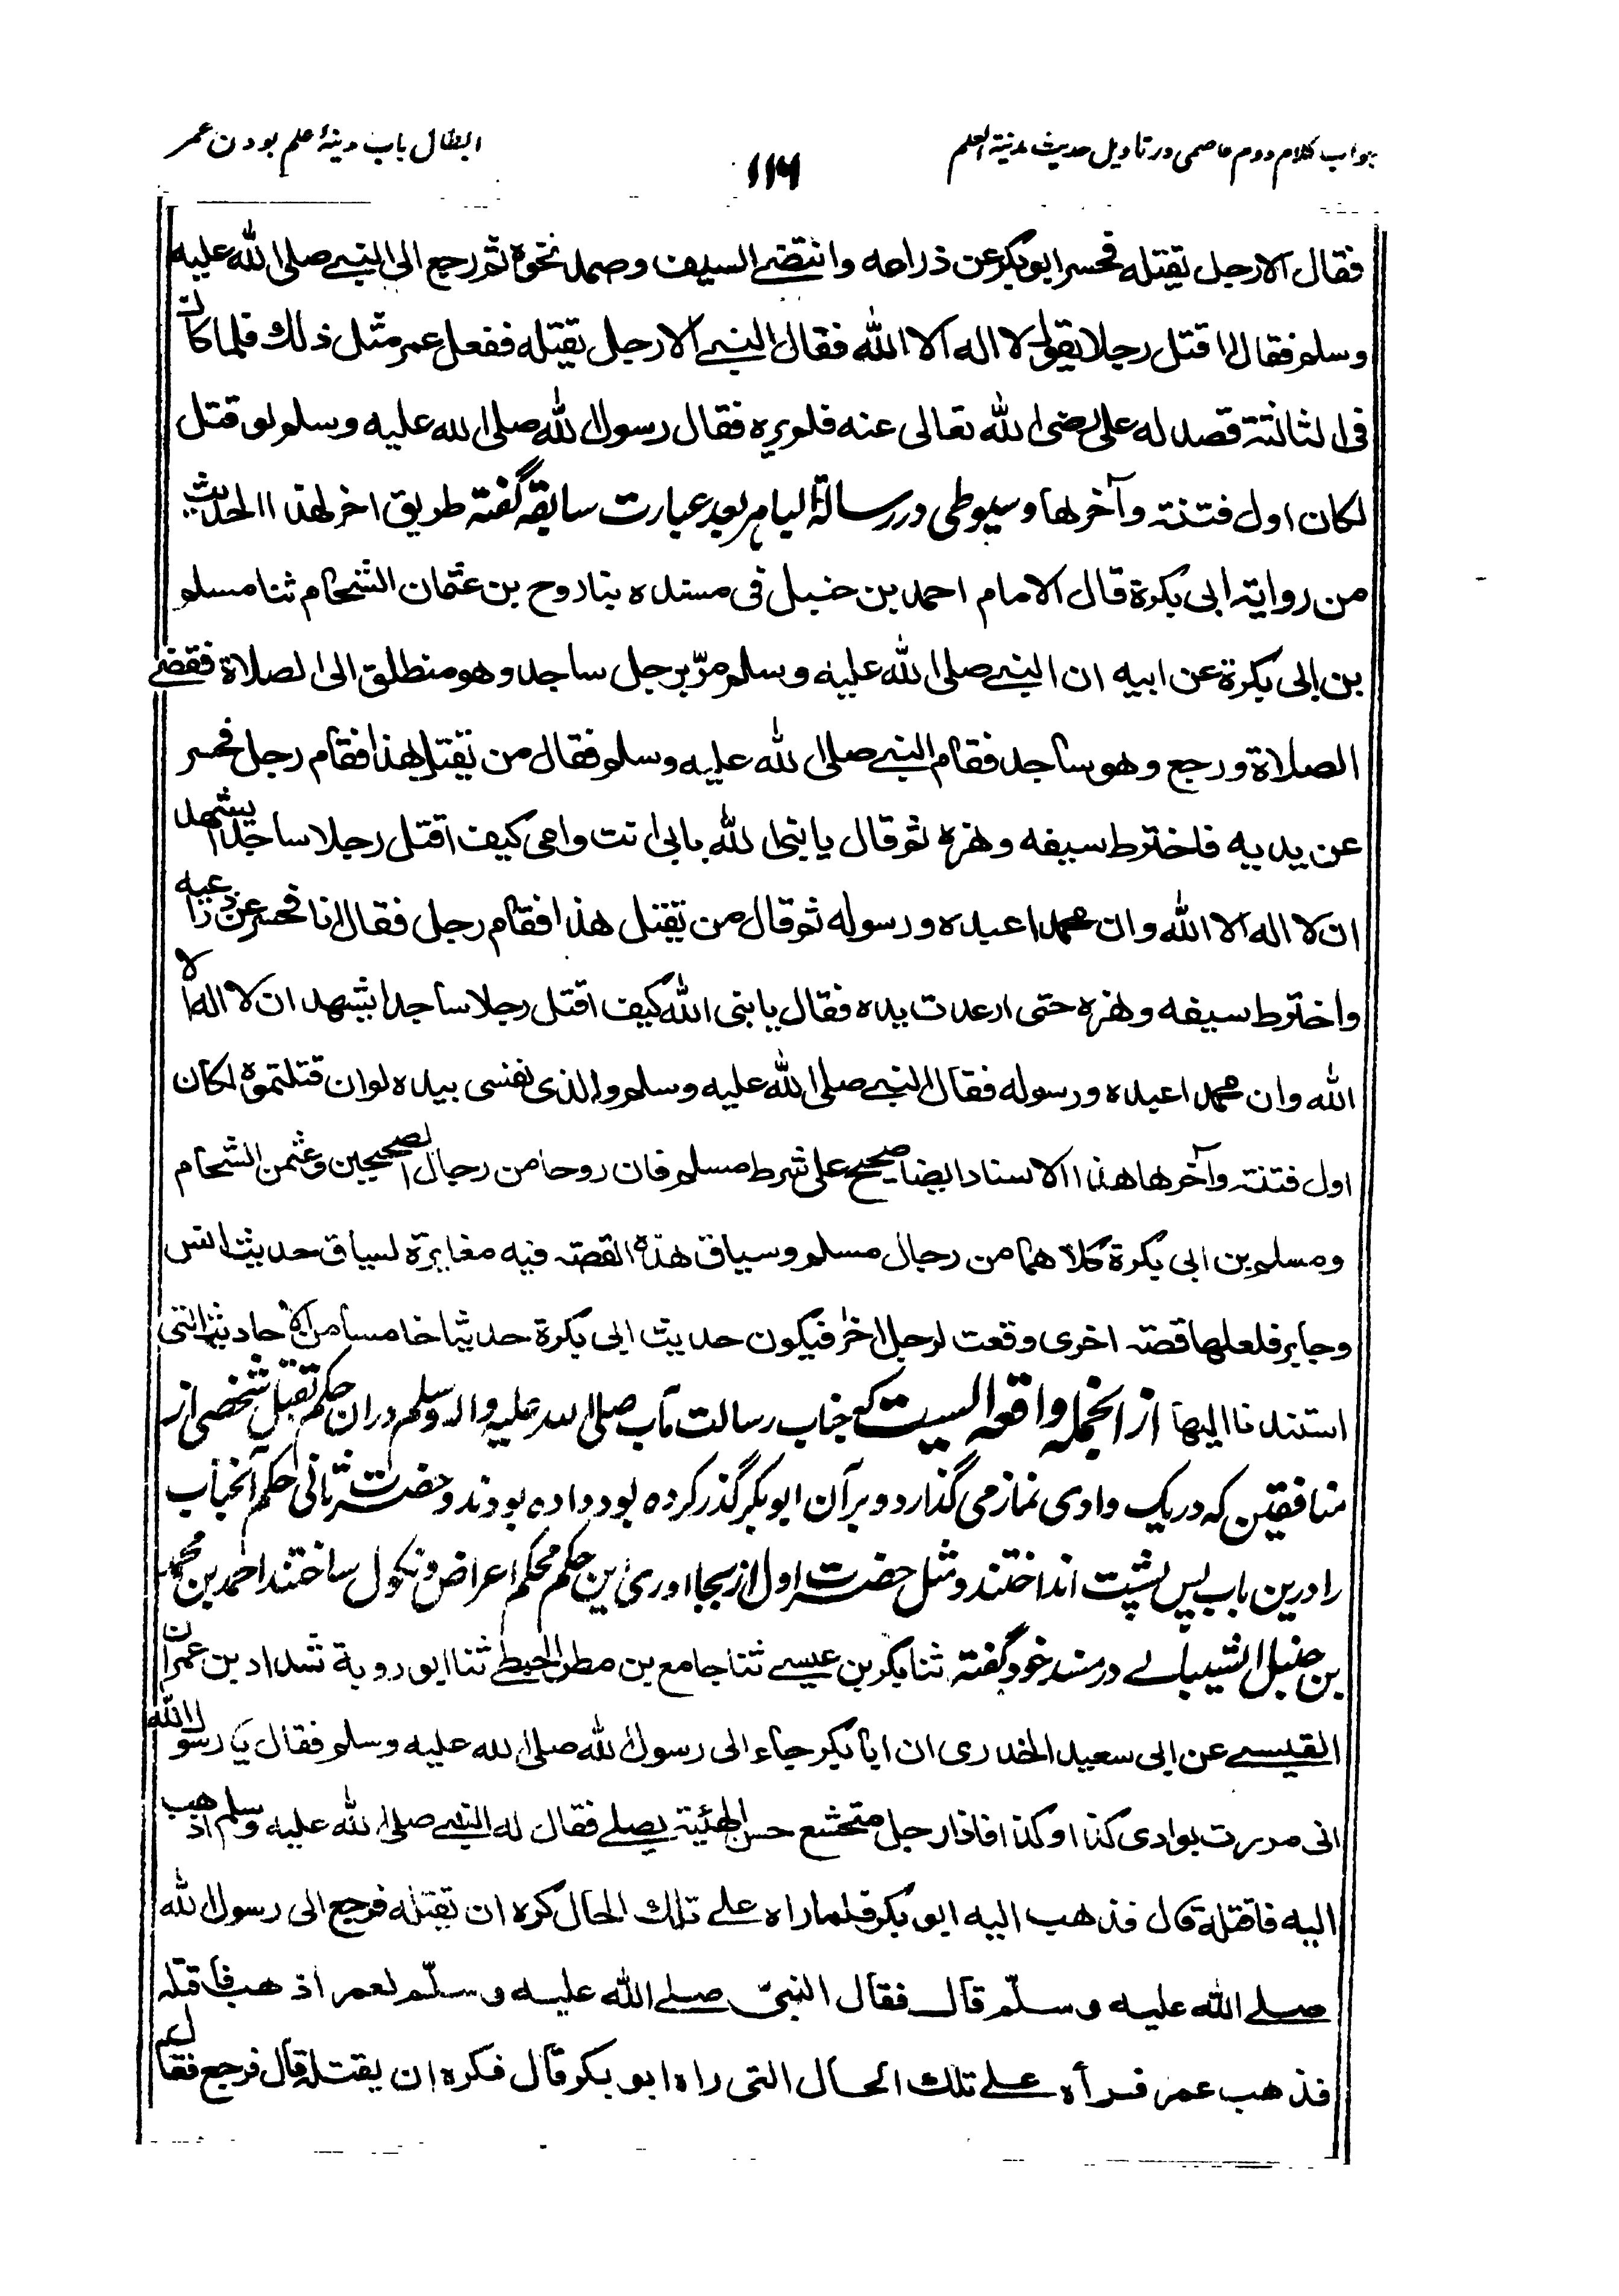 جواب کلام دوم عاصمی در تاویل حدیث مدینة العلم
۱۱۶
ابطال باب مدینۂ علم بودن عمر
فقال الا رجل يقتله فحسر ابو بكر عن ذراعه وانتضى السيف وصمد نحوه ثم رجع الى النبي صلى الله عليه
وسلم فقال اقتل رجلا يقول لا اله الا الله فقال النبي الا رجل يقتله ففعل عمر مثل ذلك فلما كان
في الثالثة قصد له على رضى الله تعالى عنه فلم يره فقال رسول الله صلى الله عليه وسلم لو قتل
لكان اول فتنة وآخرها وسیوطی در رسالۀ الیاهر بعد عبارت سابقه گفته طريق اخر لهذا الحديث
من رواية ابى بكرة قال الامام احمد بن حنبل فى مسنده ثنا روح بن عثمان الشحام ثنا مسلم
بن ابى بكرة عن ابيه ان النبي صلى الله عليه وسلم مرّ برجل ساجد وهو منطلق الى الصلاة فقضى
الصلاة ورجع وهو ساجد فقام النبي صلى الله عليه وسلم فقال من يقتل هذا فقام رجل فحسر
عن يديه فاخترط سيفه وهزه ثم قال يا نبى الله بابى انت وامى كيف اقتل رجلا ساجدا يشهد
ان لا اله الا الله وان محمدا عبده ورسوله ثم قال من يقتل هذا فقام رجل فقال انا فحسر عن ذراعيه
واخترط سيفه وهزه حتى ارعدت يده فقال يا نبى الله كيف اقتل رجلا ساجدا يشهد ان لا اله الا
الله وان محمدا عبده ورسوله فقال النبي صلى الله عليه وسلم والذى نفسى بيده لو ان قتلتموه لكان
اول فتنة وآخرها هذا الاسناد ايضا صحيح على شرط مسلم فان روحا من رجال الصحيحين وعثمن الشحام
ومسلم بن ابى بكرة كلاهما من رجال مسلم وسياق هذه القصة فيه مغايرة لسياق حديث انس
وجابر فلعلها قصة اخرى وقعت لرجل اخر فيكون حديث ابى بكرة حديثا خامسا من الاحاديث التى
استندنا اليها از انجمله واقعه الیست که جناب رسالت مآب صلی الله علیه واله وسلم دران حکم بقتل شخصی از
منافقین که در یک وادی نماز می گذارد و بر آن ابو بکر گذر کرده بود داده بودند و حضرت ثانی حکم آنجناب
را درین باب پس پشت انداختند و مثل حضرت اول از بجا اوری این حکم محکم اعراض و نکول ساختند احمد بن محمد
بن حنبل الشیبانی در مسند خود گفته ثنا بكر بن عيسى ثنا جامع بن مطر الحبطى ثنا ابو روبة شداد بن عمران
القيسى عن ابى سعيد الخدرى ان ابا بكر جاء الى رسول الله صلى الله عليه وسلم فقال يا رسول الله
انى مررت بوادى كذا وكذا فاذا رجل متخشع حسن الهيئة يصلى فقال له النبي صلى الله عليه وسلم اذهب
اليه فاقتله قال فذهب اليه ابو بكر فلما راه على تلك الحال كره ان يقتله فرجع الى رسول الله
صلى الله عليه وسلّم قال فقال النبىّ صلى الله عليه وسلّم لعمر اذهب فاقتله
فذهب عمر فرأه على تلك الحال التى راه ابو بكر قال فكره ان يقتله قال فرجع فقال